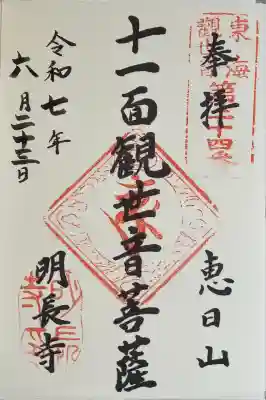 奉拝
東海
第二十四番
恵日山
十一面観世音菩薩
明長寺
令和七年
六月二十三日